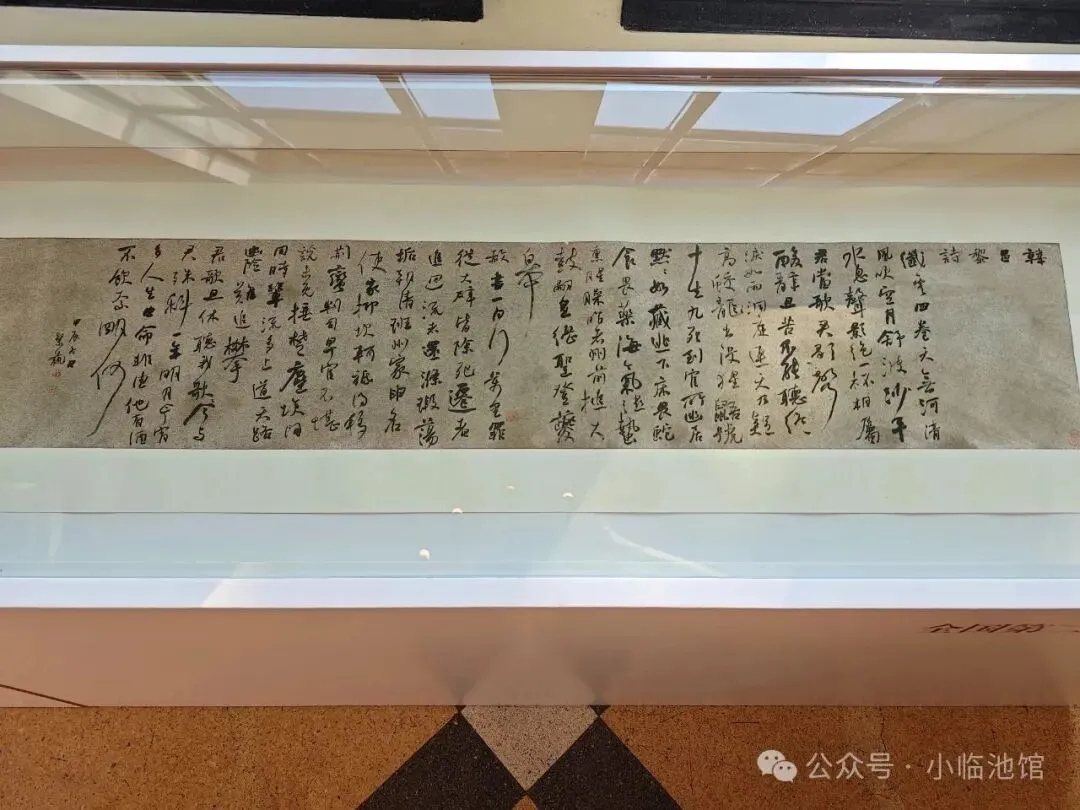 韓昌黎詩
纖雲四卷天無河清
風吹空月舒波沙平
水息聲影絕一杯相屬
君當歌君歌聲
酸辭且苦不能聽終
淚如雨洞庭連天九疑
高蛟龍出沒猩鼯號
十生九死到官所幽居
默々如藏逃下床畏蛇
食畏藥海氣濕蟄
熏腥臊昨者州前搥大
鼓嗣皇繼聖登夔
皋
赦書一日行萬里罪
從大辟皆除死遷者
追迴流者還滌瑕蕩
垢朝清班州家申名
使家抑坎軻祇得移
荊蠻判司卑官不堪
說未免捶楚塵埃間
同時輩流多上道天路
幽險難追攀
君歌且休聽我歌今與
君殊科一年明月今宵
多人生由命非由他有酒
不飲奈明何
甲辰
公众号·小临池馆